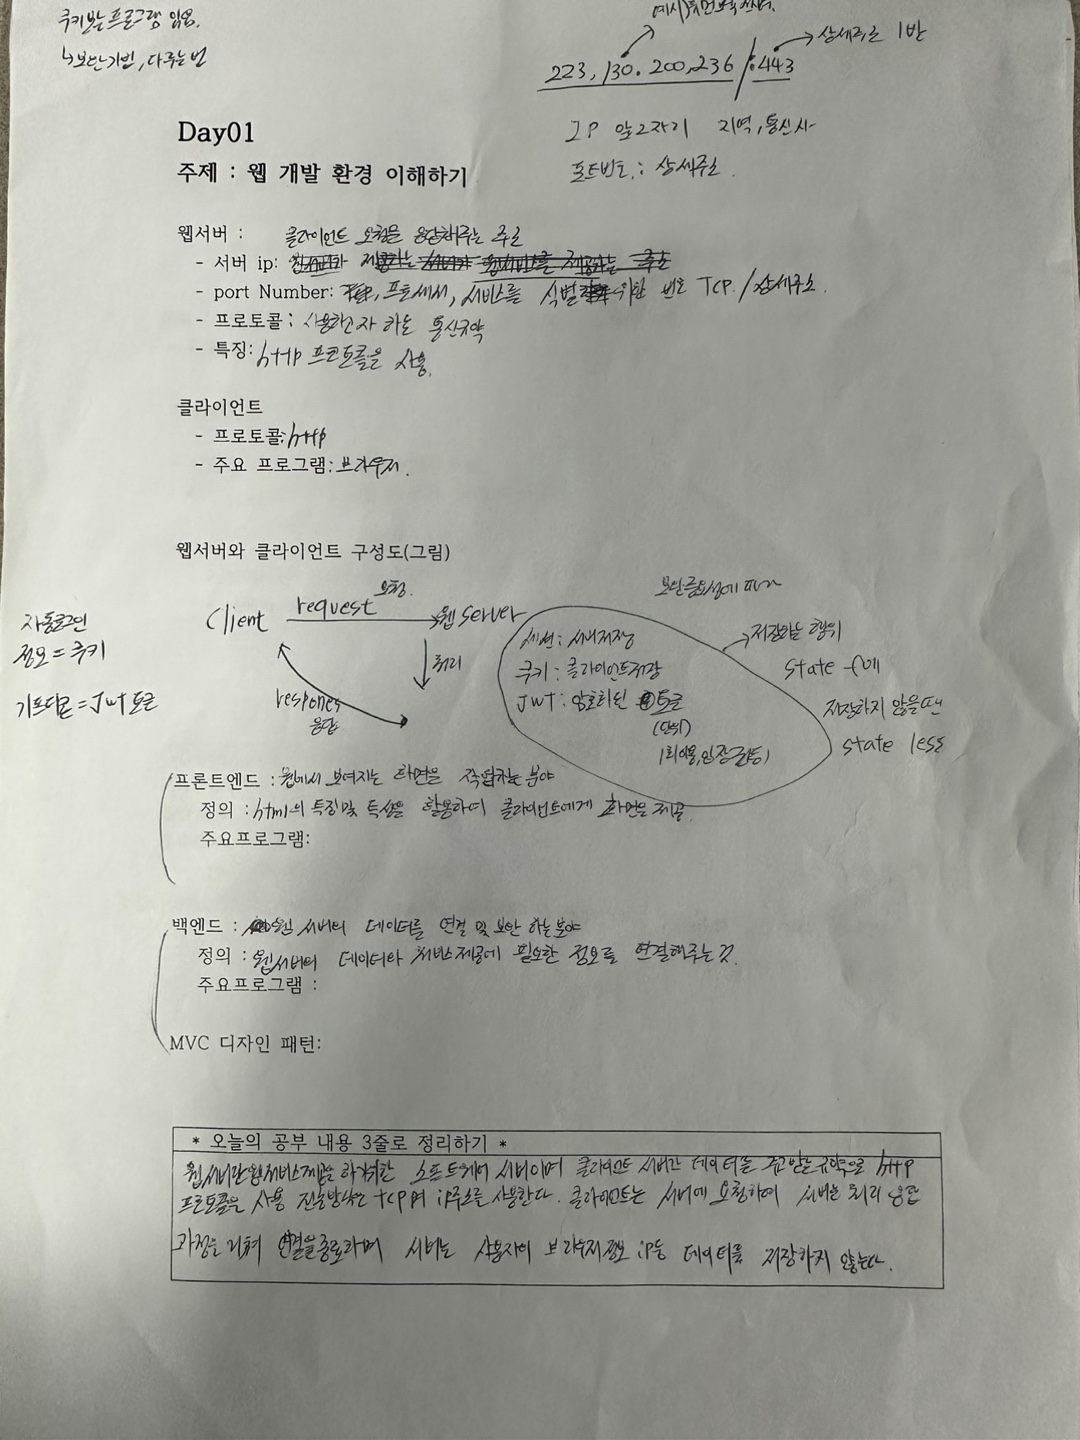 쿠키 받는 프로그램 있음.
↳ 보안기법, 다루는 법
223, 130. 200, 236 / :443
→ 상세주소 1반
IP 앞 2자리 지역, 통신사
포트번호 : 상세주소.
Day01
주제 : 웹 개발 환경 이해하기
웹서버 : 클라이언트 요청을 응답해주는 주소
- 서버 ip:
- port Number: 프로세서, 서비스를 식별 위한 번호 TCP. / 상세주소.
- 프로토콜 : 사용하고자 하는 통신규약
- 특징: http 프로토콜을 사용.
클라이언트
- 프로토콜: http
- 주요 프로그램: 브라우저.
웹서버와 클라이언트 구성도(그림)
자동로그인
정보 = 쿠키
기프티콘 = Jwt 토큰
Client request 요청. 웹 server
처리
respones
응답
보안중요성에 따라
세션 : 서버저장
쿠키 : 클라이언트저장
JWT : 암호화된 토큰
(단위)
→ 저장하는 행위
state-full
저장하지 않을때
state less
프론트엔드 : 웹에서 보여지는 화면을 작업하는 분야
정의 : html의 특징및 특성을 활용하여 클라이언트에게 화면을 제공.
주요프로그램:
백엔드 : 웹 서버의 데이터를 연결 및 보안 하는 분야
정의 : 웹서버의 데이터와 서비스 제공에 필요한 정보를 연결해주는 것.
주요프로그램 :
MVC 디자인 패턴:
* 오늘의 공부 내용 3줄로 정리하기 *
웹서버란 웹서비스 제공을 하기위한 소프트웨어 서버이며 클라이언트 서버간 데이터를 주고받는 규약으로 http
프로토콜을 사용 전송방식은 TCP며 ip주소를 사용한다. 클라이언트는 서버에 요청하여 서버는 처리 응답
과정을 거쳐 연결을 종료하며 서버는 사용자의 브라우저 정보 ip등 데이터를 저장하지 않는다.